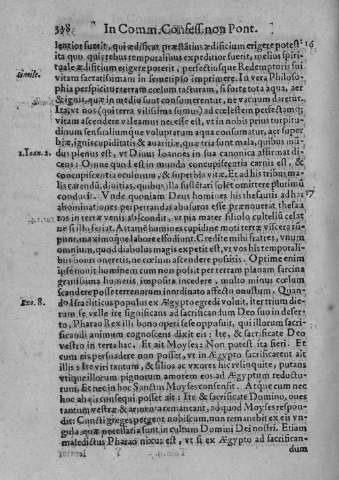 338 In Comm. Confess. non Pont.
lentior fuerit, qui ædificat præstātius ædificium erigere potest 16
ita quo quis rebus temporalibus expeditior fuerit, melius spiri-
tuale ædificium erigere poterit, perfectiusque Redemptoris sui
simile. vitam sactatissimam in semetipso imprimere. In vera Philoso-
phia perspicitur terram cœlum tacturam, si forte tota aqua, aer
& ignis, quæ in medio sunt consumerentur, ne vacuum daretur.
Ita, vt nos (qui terra vilissima sumus) ad cœlestem perfectamq;
vitam ascendere valeamus necesse est, vt in nobis prius turpitu-
dinum sensualiumque voluptatum aqua consumatur, aer super
biæ, ignis cupiditatis & auaritiæ, quæ tria sunt mala, quibus mū-
1.Ioan. 2. dus plenus est, vt Diuus Ioannes in sua canonica affirmat di-
cens: Omne quod est in mundo concupiscentia carnis est, &
concupiscentia oculorum, & superbia vitæ. Et ad his tribus ma-
lis carendū, diuitias, quibus, illa sustētari solēt omittere plurimū
conducit. Vnde quoniam Deus homines his thesauris ad has 17
abominationes perpetrandas abusuros esse prænouerat thesau
ros in terræ venis abscondit, vt pia mater filiolo cultellū celat
ne si illi feriat. Attamē homines cupidine moti terræ viscera rū-
punt, maximoque labore effodiunt. Credite mihi fratres, vnum
omnium, quod diabolus magis expetit est, vt vos his temporali-
bus bonis oneretis, ne cœlum ascendere possitis. Optime enim
ipse nouit hominem cum non possit per terram planam sarcina
grauissima humeris imposita incedere, multo minus cœlum
scandere posse terreno rum inordinato affectu onustum. Quan-
Exo. 8. do Israeliticus populus ex Ægypto egredi voluit, iter trium die-
rum se velle ire significans ad sacrificandum Deo suo in deser-
to, Pharao Rex illi bono operi sese opposuit, qui illorum sacri-
ficandi animum cognoscens dixit eis: Ite, & sacrificate Deo
vestro in terra hac. Et ait Moyses: Non potest ita fieri. Et
cum eis persuadere non posset, vt in Ægypto sacrificarent ait
illis: Ite viri tantum, & filios ac vxores hic relinquite, putans
vtique illorum pignorum amorem eos ad Ægyptum reductu-
rum, sit nec in hoc Sanctus Moyses consensit. Atque cum nec
hoc ab eis consequi posset ait: Ite & sacrificate Domino, oues
tantum vestræ & armenta remaneant, ad quod Moyses respon-
dit: Cuncti greges pergent nobiscum, non remanebit ex eis vn-
gula, quæ necessaria sunt in cultum Domini Dei nostri. Etiam
maledictus Pharao nixus est, vt si ex Ægypto ad sacrifican-
dum